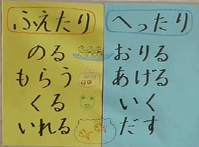 ふえたり
のる
もらう
くる
いれる
へったり
おりる
あげる
いく
だす